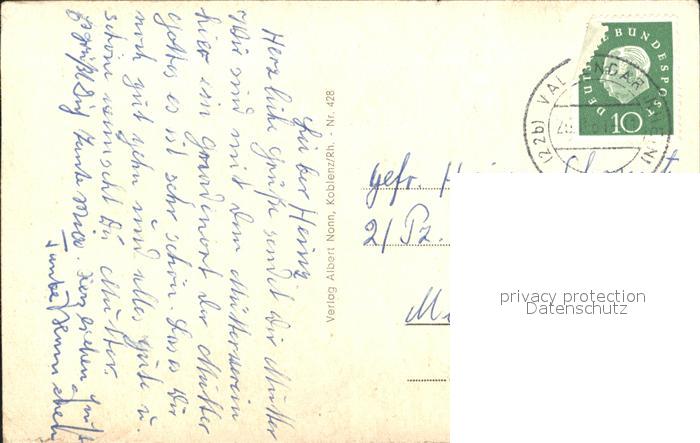 Lieber Heinz
Herzliche Grüße sendet Dir Mutter
Wir sind mit dem Mütterverein
hier im Gnadenort der Mutter
Gottes es ist sehr schön. Lass es Dir
noch gut gehn und alles gute u.
schöne wünscht Dir Mutter.
Es grüßt Dich Tante Mia. Herzlichen Gruß
Tante
Verlag Albert Nonn, Koblenz/Rh. - Nr. 428
DEUTSCHE BUNDESPOST
10
(22b) VALLENDAR (RHEIN)
Gefr.
2/Pz.
privacy protection
Datenschutz